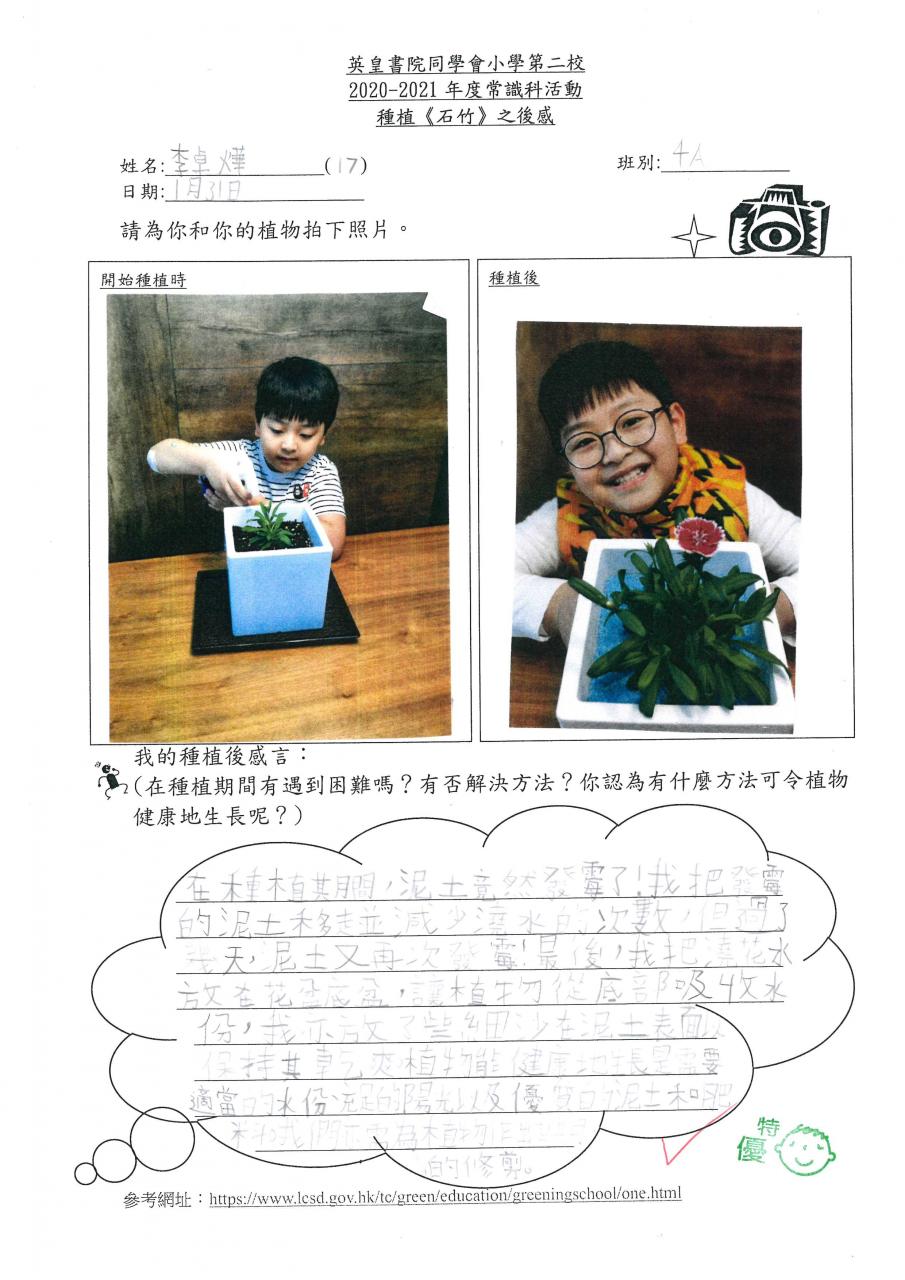 英皇書院同學會小學第二校
2020-2021 年度常識科活動
種植《石竹》之後感
姓名:李卓燁(17)
班別:4A
日期:1月31日
請為你和你的植物拍下照片。
開始種植時
種植後
我的種植後感言：
(在種植期間有遇到困難嗎？有否解決方法？你認為有什麼方法可令植物
健康地生長呢？)
在種植其間，泥土竟然發霉了！我把發霉
的泥土移走並減少澆水的次數，但過了
幾天，泥土又再次發霉！最後，我把澆花水
放在花盆底盆，讓植物從底部吸收水
份，我亦放了些細沙在泥土表面以
保持其乾爽植物能健康地生長是需要
適當的水份充足的陽光以及優質的泥土和肥
料我們亦需為植物作出
的修剪。
特優
參考網址：https://www.lcsd.gov.hk/tc/green/education/greeningschool/one.html